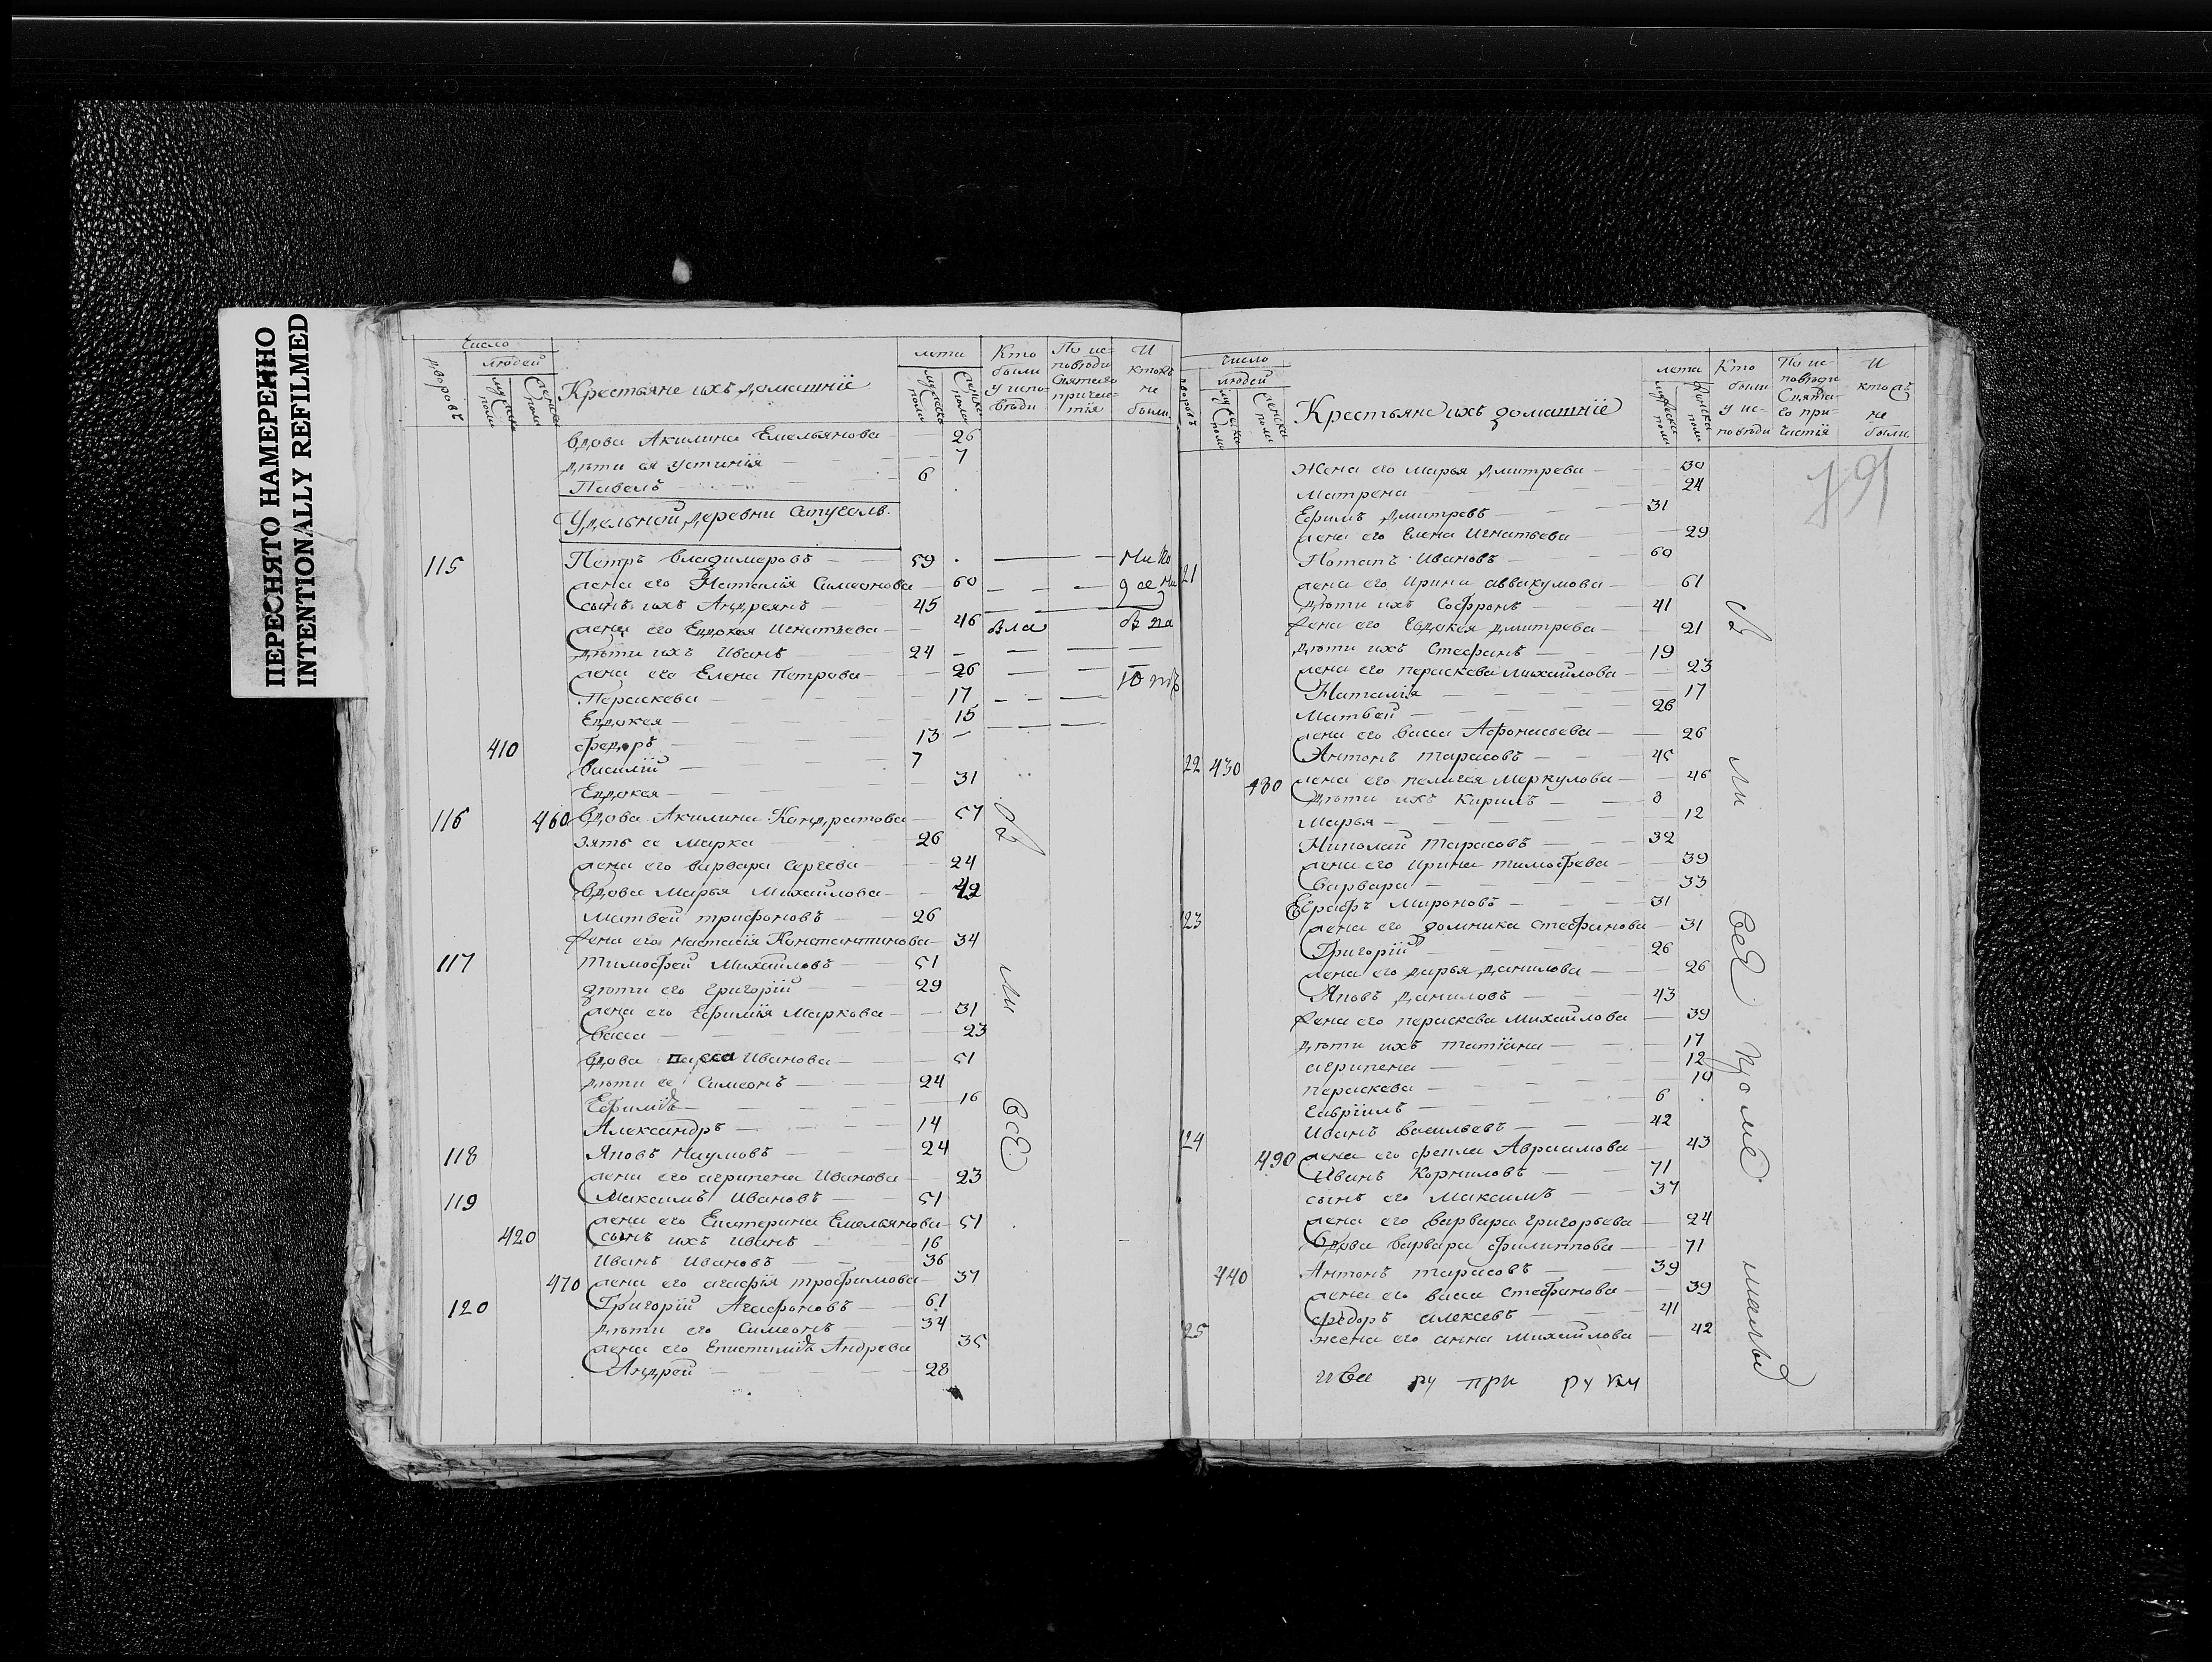 ПЕРЕСНЯТО НАМЕРЕННО
INTENTIONALLY REFILMED
Число
дворовъ
людей
мужеска полу
женска полу
Крестьяне ихъ домашніе
лета
мужеска полу
женска полу
Кто были у исповѣди
По исповѣди Святаго причастія
И ктожъ не были
Вдова Акилина Емельянова 26
дѣти ея Устинія 7
Павелъ 6
Удельной деревни
115 Петръ Владимеровъ 59
жена его Наталія Симеонова 60
сынъ ихъ Андреянъ 45
жена его Евдокея Игнатьева 46
дѣти ихъ Иванъ 24
жена его Елена Петрова 26
Параскева 17
Евдокея 15
410 Федоръ 13
Василій 7
Евдокея 31
116 460 Вдова Акилина Кондратова 57
Зять ее Марка 26
жена его Варвара Сергеева 24
Вдова Марья Михайлова 42
Матвей Трифоновъ 26
жена его Настасія Константинова 34
117 Тимофей Михайловъ 51
дѣти его Григорій 29
жена его Ефимія Маркова 31
Васса 23
Вдова Иванова 51
дѣти ее Симеонъ 24
Ефимія 16
Александръ 14
118 Яковъ Наумовъ 24
жена его Агрипена Иванова 23
119 Максимъ Ивановъ 51
жена его Екатерина Емельянова 51
420 сынъ ихъ Иванъ 16
Иванъ Ивановъ 36
470 жена его Агафія Трофимова 37
120 Григорій Агафоновъ 61
дѣти его Симеонъ 34
жена его Епистимія Андреева 35
Андрей 28
Бы
ли
все
Число
дворовъ
людей
мужеска полу
женска полу
Крестьяне ихъ домашніе
лета
мужеска полу
женска полу
Кто были у исповѣди
По исповѣди Святаго причастія
И ктожъ не были
Жена его Марья Дмитрева 30
Матрена 24
Ефимъ Дмитревъ 31
жена его Елена Игнатьева 29
21 Потапъ Ивановъ 60
жена его Ирина Аввакумова 61
дѣти ихъ Софронъ 41
жена его Евдокея Дмитрева 21
дѣти ихъ Стефанъ 19
жена его Параскева Михайлова 23
Наталія 17
Матвей 26
жена его Васса Афонасьева 26
22 430 Антонъ Тарасовъ 45
480 жена его Пелагея Меркулова 46
дѣти ихъ Кирилъ 8
Марья 12
Николай Тарасовъ 32
жена его Ирина Тимофеева 39
Варвара 33
23 Евграфъ Мироновъ 31
жена его Домника Стефанова 31
Григорій 26
жена его Дарья Данилова 26
Яковъ Даниловъ 43
жена его Параскева Михайлова 39
дѣти ихъ Татіана 17
Агрипена 12
Параскева 10
Гавріилъ 6
24 Иванъ Васильевъ 42
490 жена его Фекла Авраамова 43
Иванъ Корниловъ 71
сынъ его Максимъ 37
жена его Варвара Григорьева 24
Вдова Варвара Филиппова 71
440 Антонъ Тарасовъ 39
жена его Васса Стефанова 39
25 Федоръ Алексеевъ 41
жена его Анна Михайлова 42
Бы
ли
все
кроме
малы
ива ру при ру ки